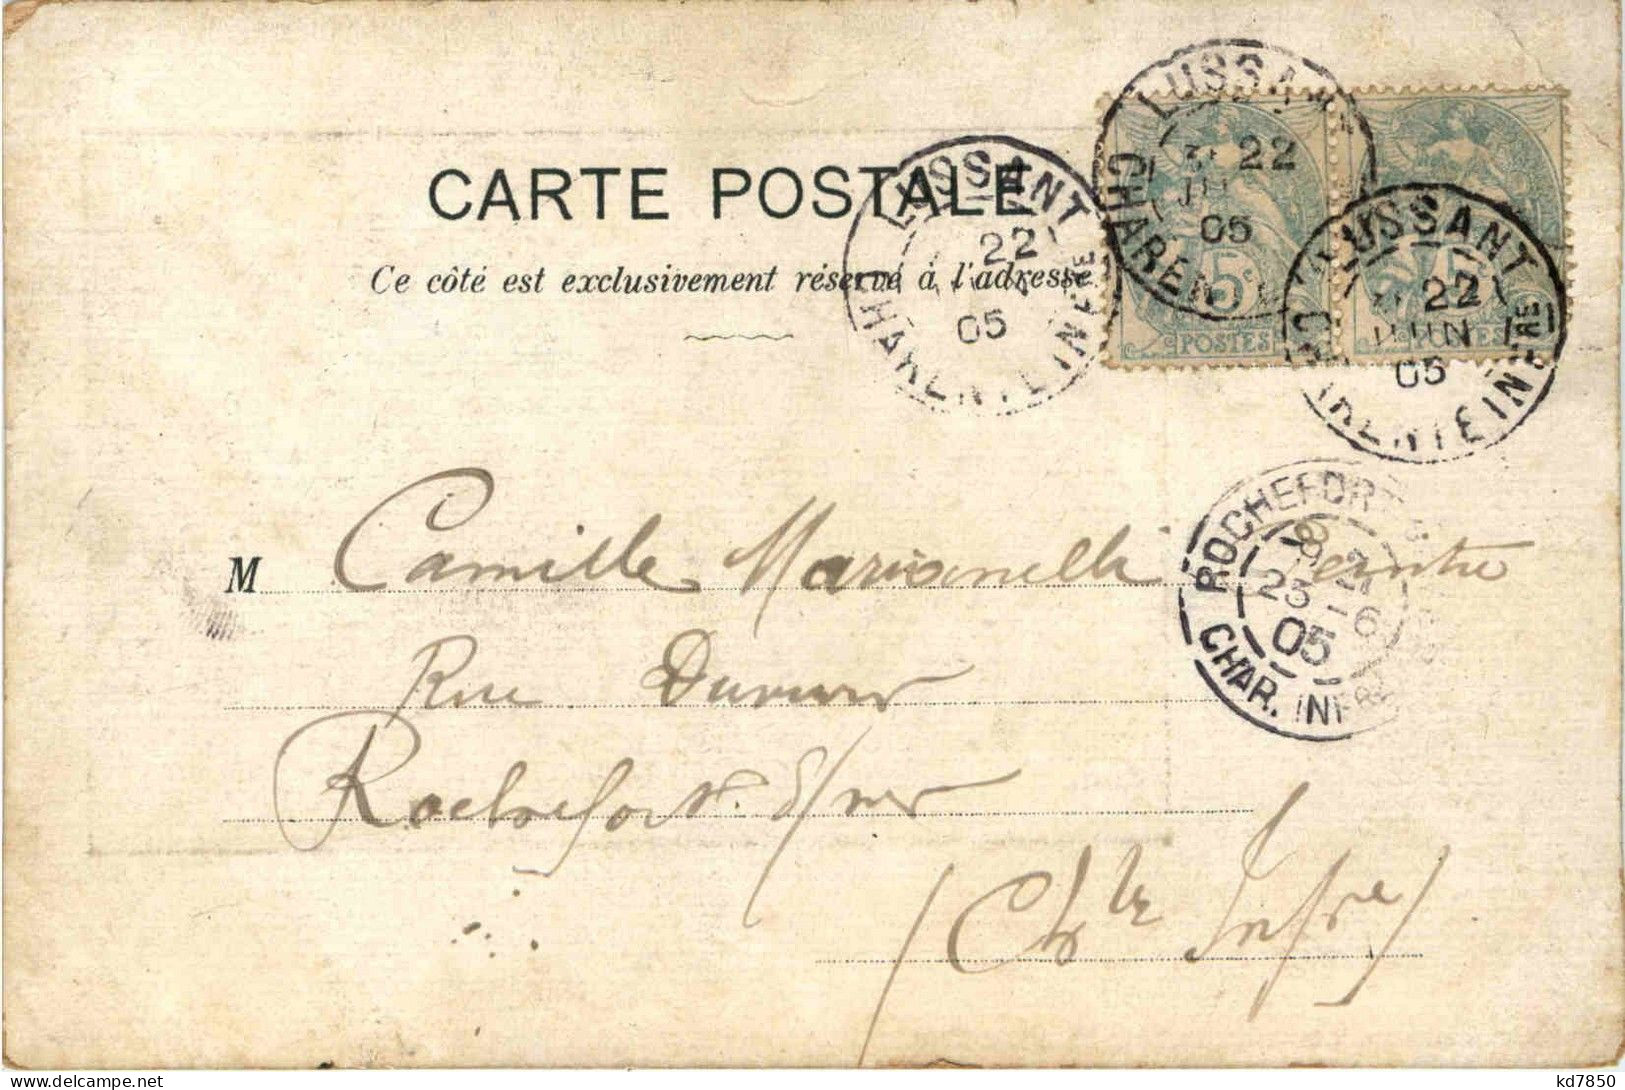 CARTE POSTALE
Ce côté est exclusivement réservé à l'adresse
LUSSANT
22
05
CHARENTE INFRE
LUSSANT
22
05
CHARENTE
5c
POSTES
LUSSANT
22
JUIN
05
CHARENTE INFRE
POSTES
ROCHEFORT
23 - 6
05
CHAR. INFRE
M Camille Marianelli Peintre
Rue
Rochefort s/mer
(Chte Infre)
Delcampe.net
kd7850